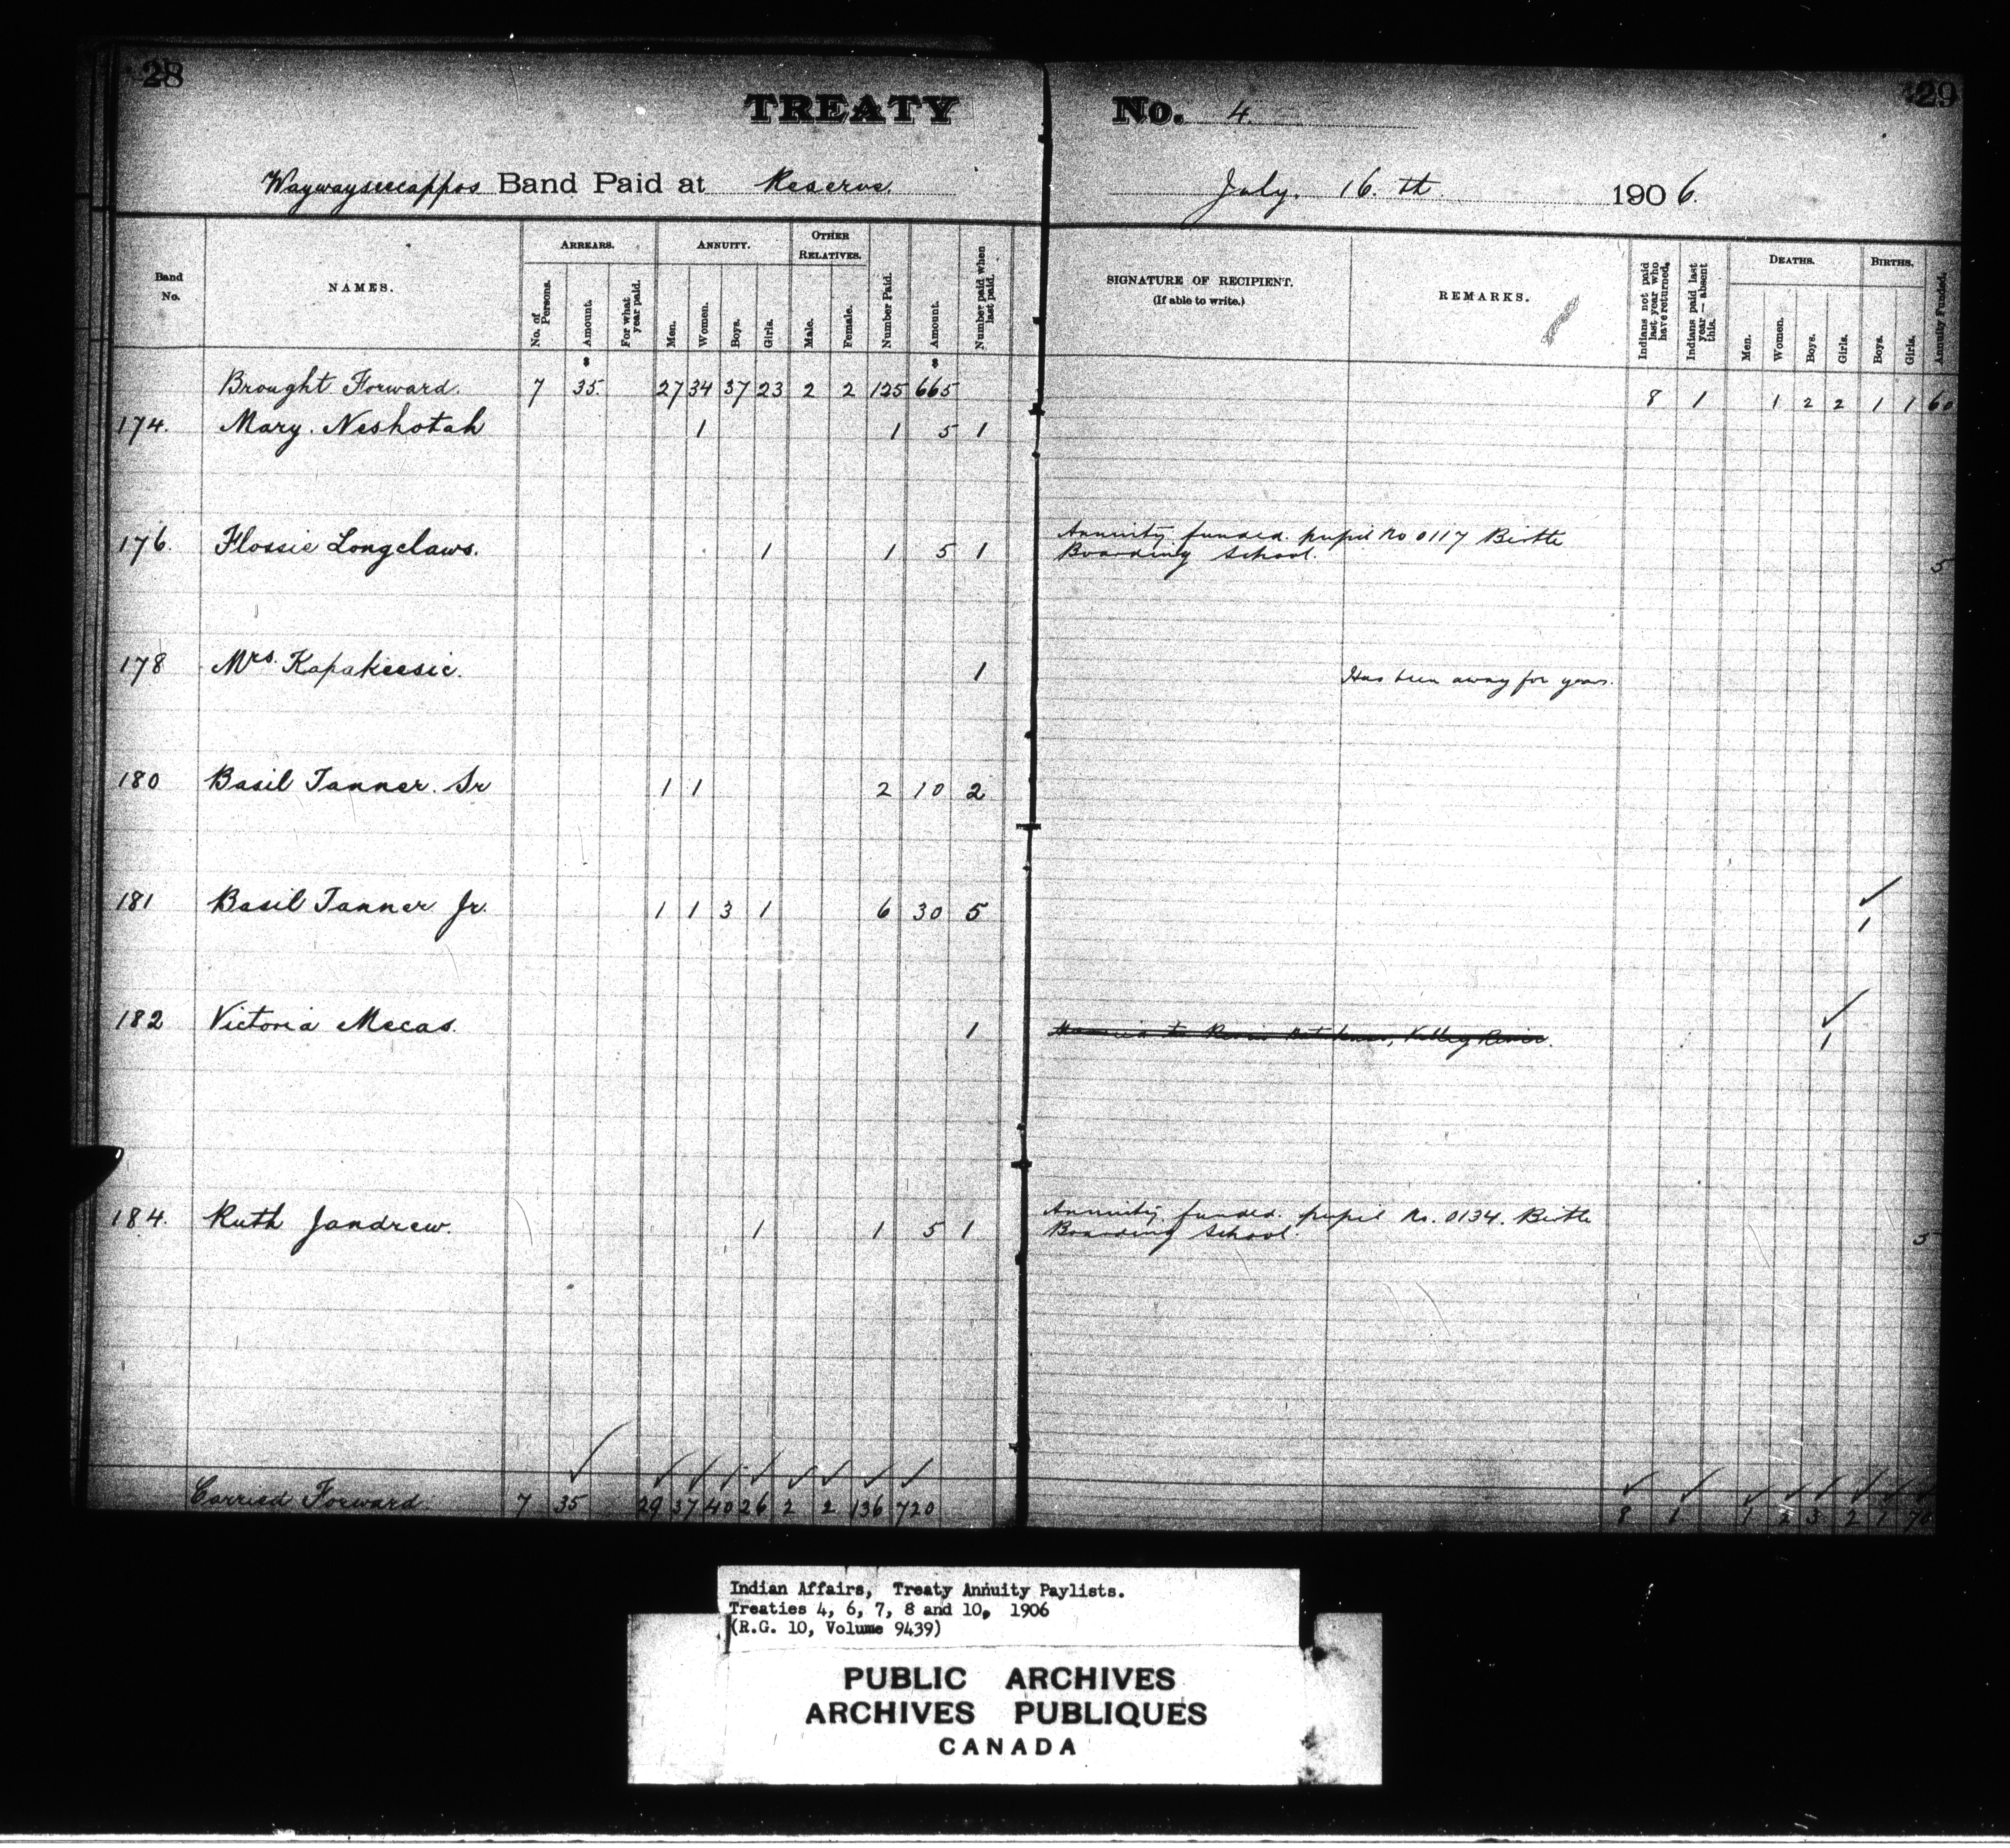 28
29
TREATY No. 4.
Waywayseecappos Band Paid at Reserve. July. 16. th. 1906.
Band No.
NAMES.
ARREARS.
No. of Persons.
Amount.
For what year paid.
ANNUITY.
Men.
Women.
Boys.
Girls.
OTHER RELATIVES.
Male.
Female.
Number Paid.
Amount.
Number paid when last paid.
SIGNATURE OF RECIPIENT.
(If able to write.)
REMARKS.
Indians not paid last year who have returned.
Indians paid last year — absent this.
DEATHS.
Men.
Women.
Boys.
Girls.
BIRTHS.
Boys.
Girls.
Annuity Funded.
$ $
Brought Forward. 7 35. 27 34 37 23 2 2 125 665 8 1 1 2 2 1 1 60
174. Mary. Neshotah 1 1 5 1
176. Flossie Longclaws. 1 1 5 1 Annuity funded. pupil No 0117 Birtle
Boarding School. 5
178 Mrs. Kapakeesic. 1 Has been away for years.
180 Basil Tanner. Sr 1 1 2 10 2
181 Basil Tanner Jr. 1 1 3 1 6 30 5 1
182 Victoria Mecas. 1 Valley River. 1
184. Ruth Jandrew. 1 1 5 1 Annuity funded. pupil No. 0134. Birtle
Boarding School. 5
Carried Forward. 7 35 29 37 40 26 2 2 136 720 8 1 1 2 3 2 1 70
Indian Affairs, Treaty Annuity Paylists.
Treaties 4, 6, 7, 8 and 10, 1906
(R.G. 10, Volume 9439)
PUBLIC ARCHIVES
ARCHIVES PUBLIQUES
CANADA